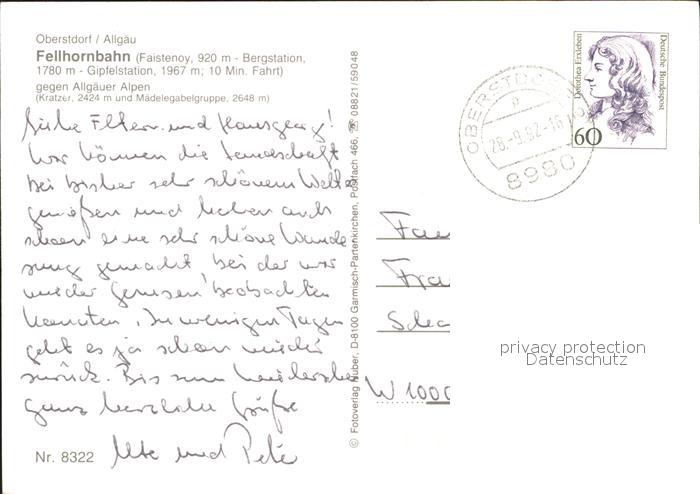 Oberstdorf / Allgäu
Fellhornbahn (Faistenoy, 920 m - Bergstation,
1780 m - Gipfelstation, 1967 m; 10 Min. Fahrt)
gegen Allgäuer Alpen
(Kratzer, 2424 m und Mädelegabelgruppe, 2648 m)
Liebe Eltern und Hansgeorg!
Wir können die Landschaft
bei bisher sehr schönem Wetter
genießen und haben auch
schon eine sehr schöne Wande
rung gemacht, bei der wir
wieder Gemsen beobachten
konnten. In wenigen Tagen
geht es ja schon wieder
zurück. Bis zum Wiedersehen
ganz herzliche Grüße
Ute und Peter
Nr. 8322
© Fotoverlag Huber, D-8100 Garmisch-Partenkirchen, Postfach 466, ☏ 08821/59048
OBERSTDORF
28.-9.92-16
8980
Dorothea Erxleben
Deutsche Bundespost
60
Fam
Fra
W 1000
privacy protection
Datenschutz